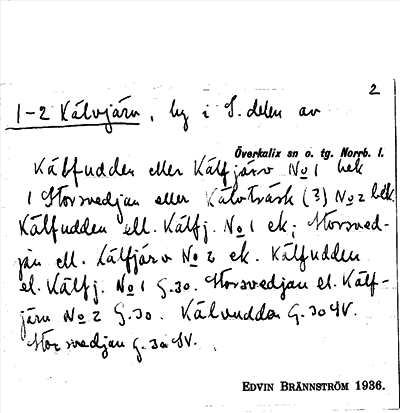 2
1-2 Kälvjärv, by i S. delen av
Överkalix sn o. tg. Norrb. l.
Kälfudden eller Kälfjärv No 1 hek
1 Storsvedjan eller Kälvträsk (?) No 2 hek.
Kälfudden ell. Kälfj. No 1 ek; Storsved-
jan ell. Kälfjärv No 2 ek. Kälfudden
el. Kälfj. No 1 G.30. Storsvedjan el. Kälf-
järv No 2 G.30. Kälvudden G.30 SV.
Storsvedjan G.30 SV.
EDVIN BRÄNNSTRÖM 1936.